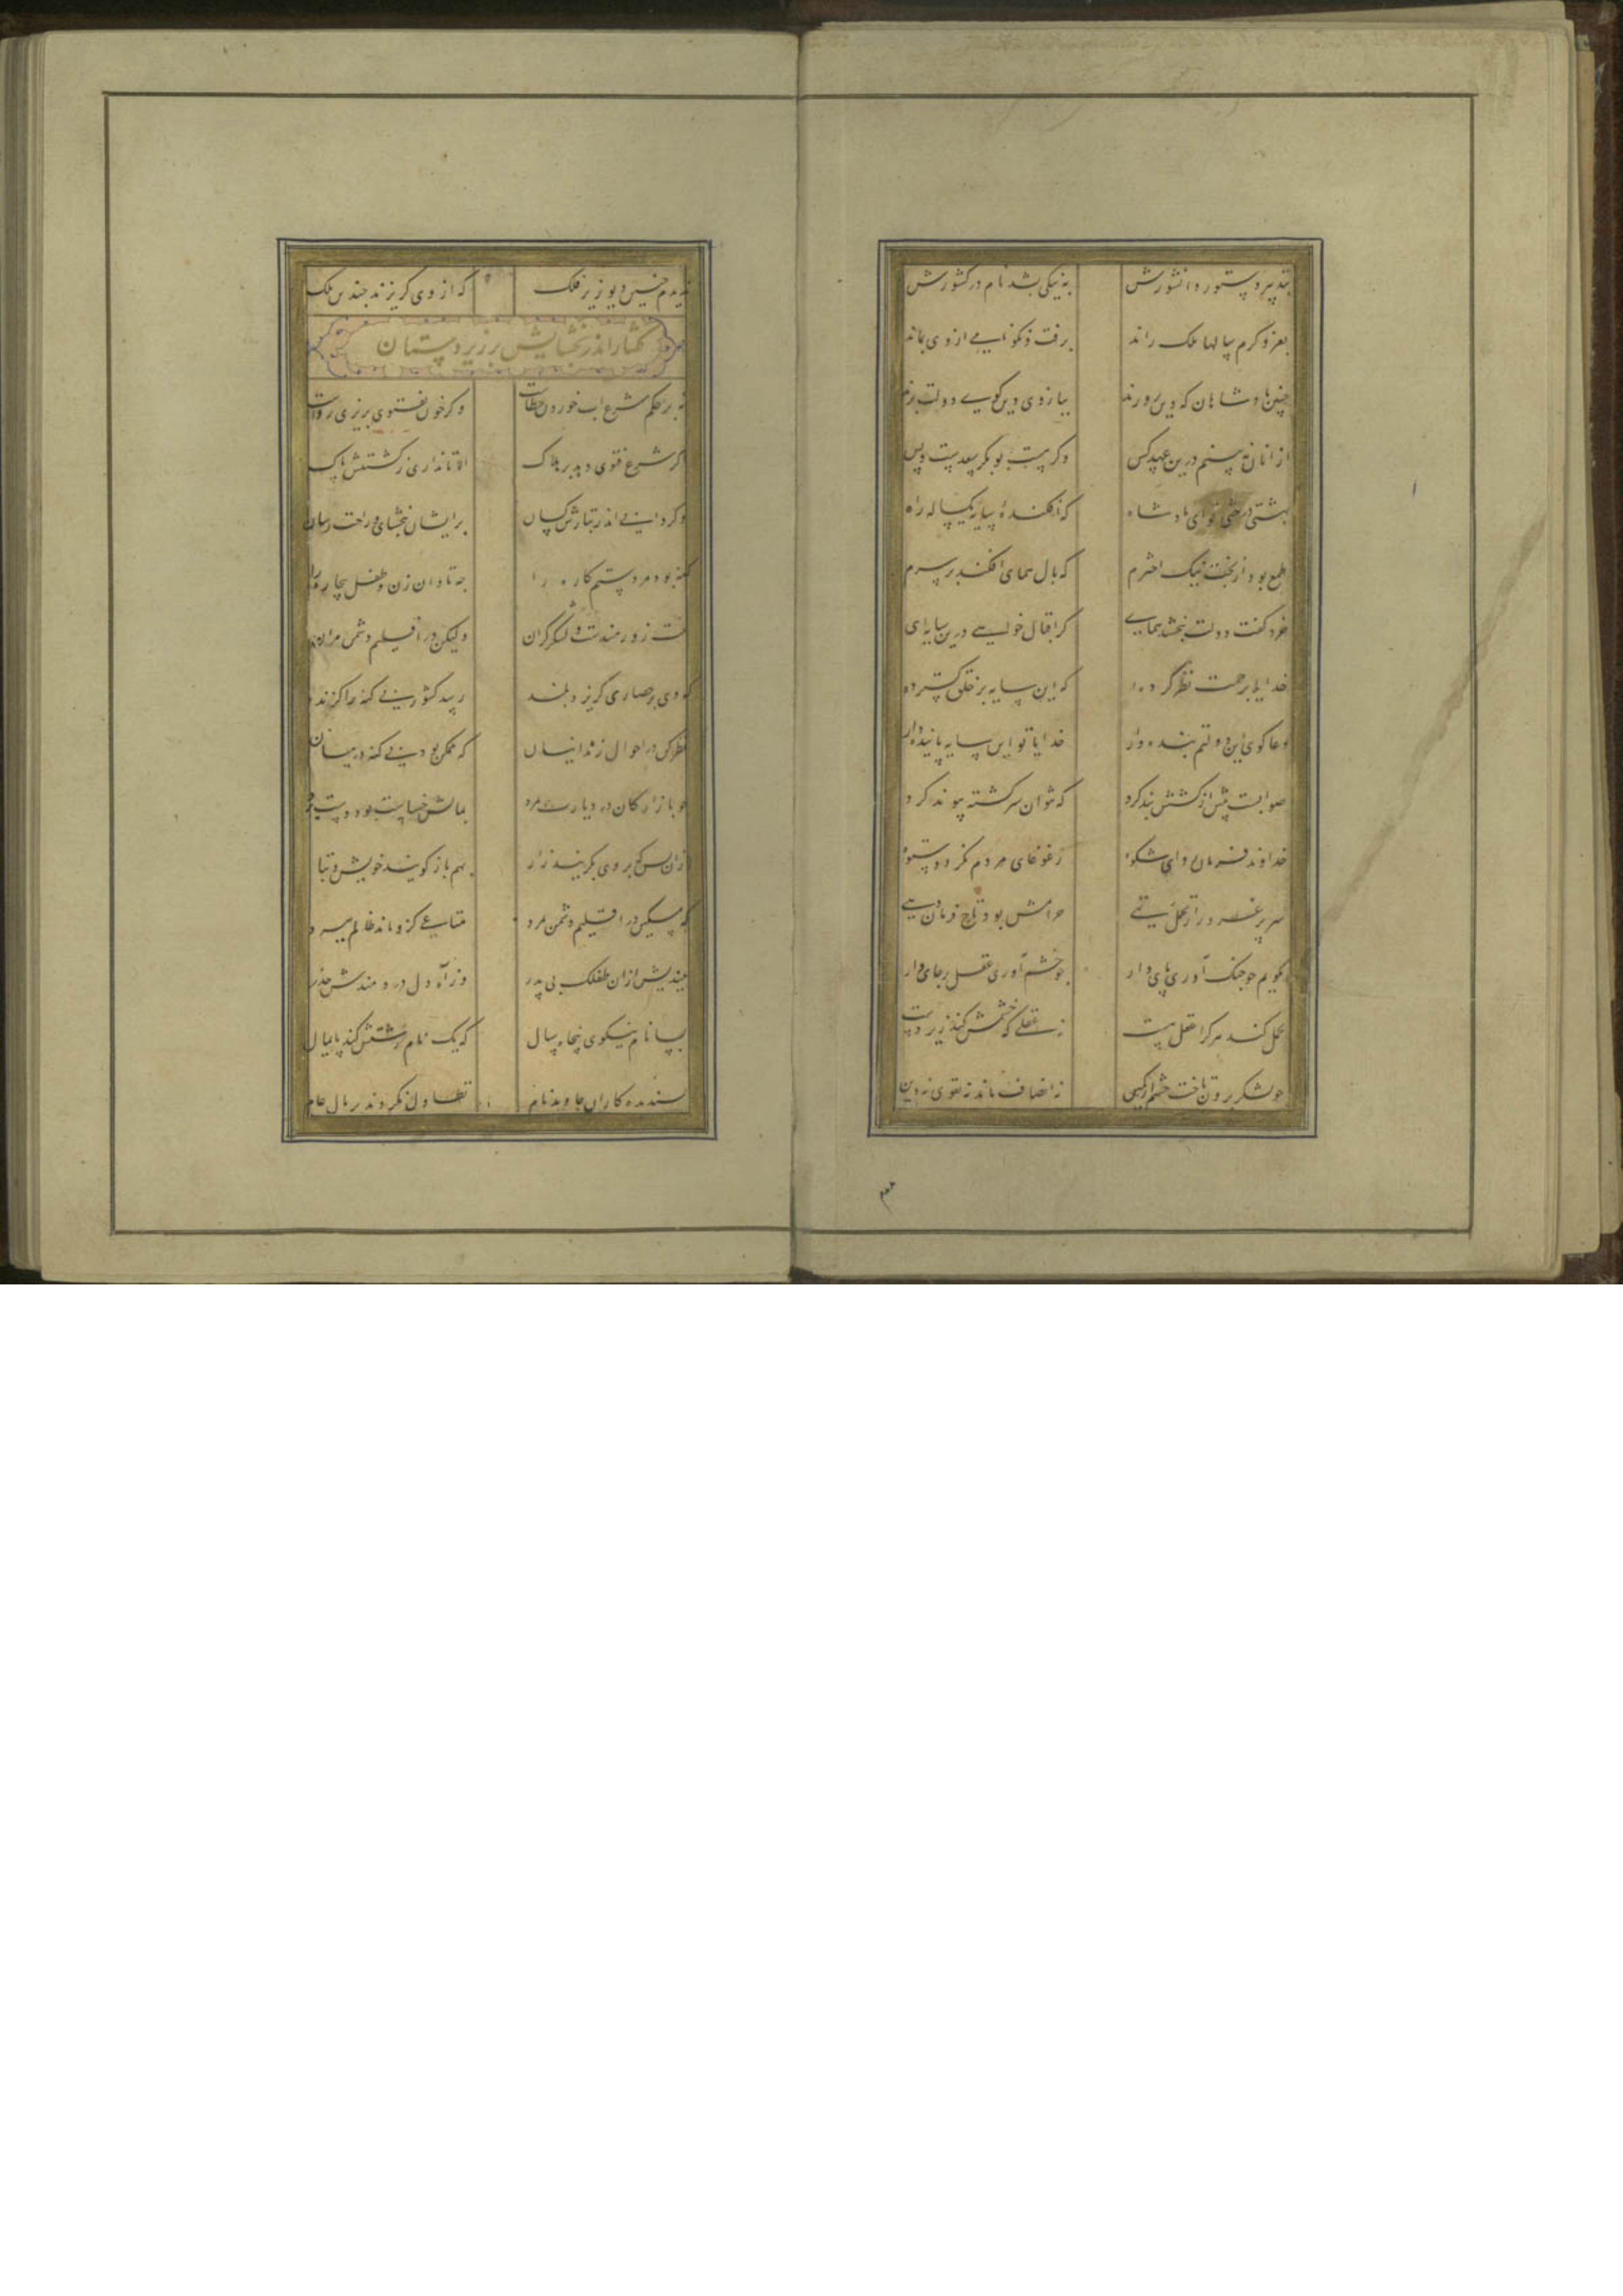 بتدبیر دستور دانشورش به نیکی بشد نام در کشورش
بعز و کرم سالها ملک راند برفت و نکو نامی از وی بماند
چنین پادشاهان که دین پرورند ببازوی دین گوی دولت برند
از آنان نه بینم درین عهد کس وگر هست بوبکر سعدست و بس
بهشتی درختی تو ای پادشاه که افکنده سایه یکساله راه
طمع بود از بخت نیک اخترم که بال همای افکند بر سرم
خرد گفت دولت نبخشد همای گر اقبال خواهی درین سایه ای
خدایا برحمت نظر کرده که این سایه بر خلق گسترده
دعا گوی این دولتم بنده وار خدایا تو این سایه پاینده دار
صوابست پیش از کشش بند کرد که نتوان سر کشته پیوند کرد
خداوند فرمان و رای و شکوه ز غوغای مردم نگردد ستوه
سر پر غرور از تحمل تهی حرامش بود تاج فرماندهی
نگویم چو جنگ آوری پای دار چو خشم آوری عقل بر جای دار
تحمل کند هر کرا عقل هست نه عقلی که خشمش کند زیر دست
چو لشکر برون تاخت خشم از کمین نه انصاف ماند نه تقوی نه دین
ندیدم چنین دیو زیر فلک که از وی گریزند چندین ملک
گفتار اندر بخشایش بر زیردستان
نه بر حکم شرع آب خوردن خطاست وگر خون بفتوی بریزی رواست
کرا شرع فتوی دهد بر هلاک الا تا نداری ز کشتنش باک
وگر دانی اندر تبارش کسان برایشان ببخشای و راحت رسان
گنه بود مرد ستمکاره را چه تاوان زن و طفل بیچاره را
تنت زورمندست و لشکر گران ولیکن در اقلیم دشمن مران
که وی بر حصاری گریزد بلند رسد کشوری بی گنه را گزند
نظر کن در احوال زندانیان که ممکن بود بی گنه در میان
چو بازارگان در دیارت بمرد بمالش خساست بود دستبرد
کزان پس که بر وی بگریند زار بهم باز گویند خویش و تبار
که مسکین در اقلیم دشمن بمرد متاعی کزو ماند ظالم ببرد
بیندیش ازان طفلک بی پدر وز آه دل دردمندش حذر
بسا نام نیکوی پنجاه سال که یک نام زشتش کند پایمال
پسندیده کاران جاوید نام تطاول نکردند بر مال عام